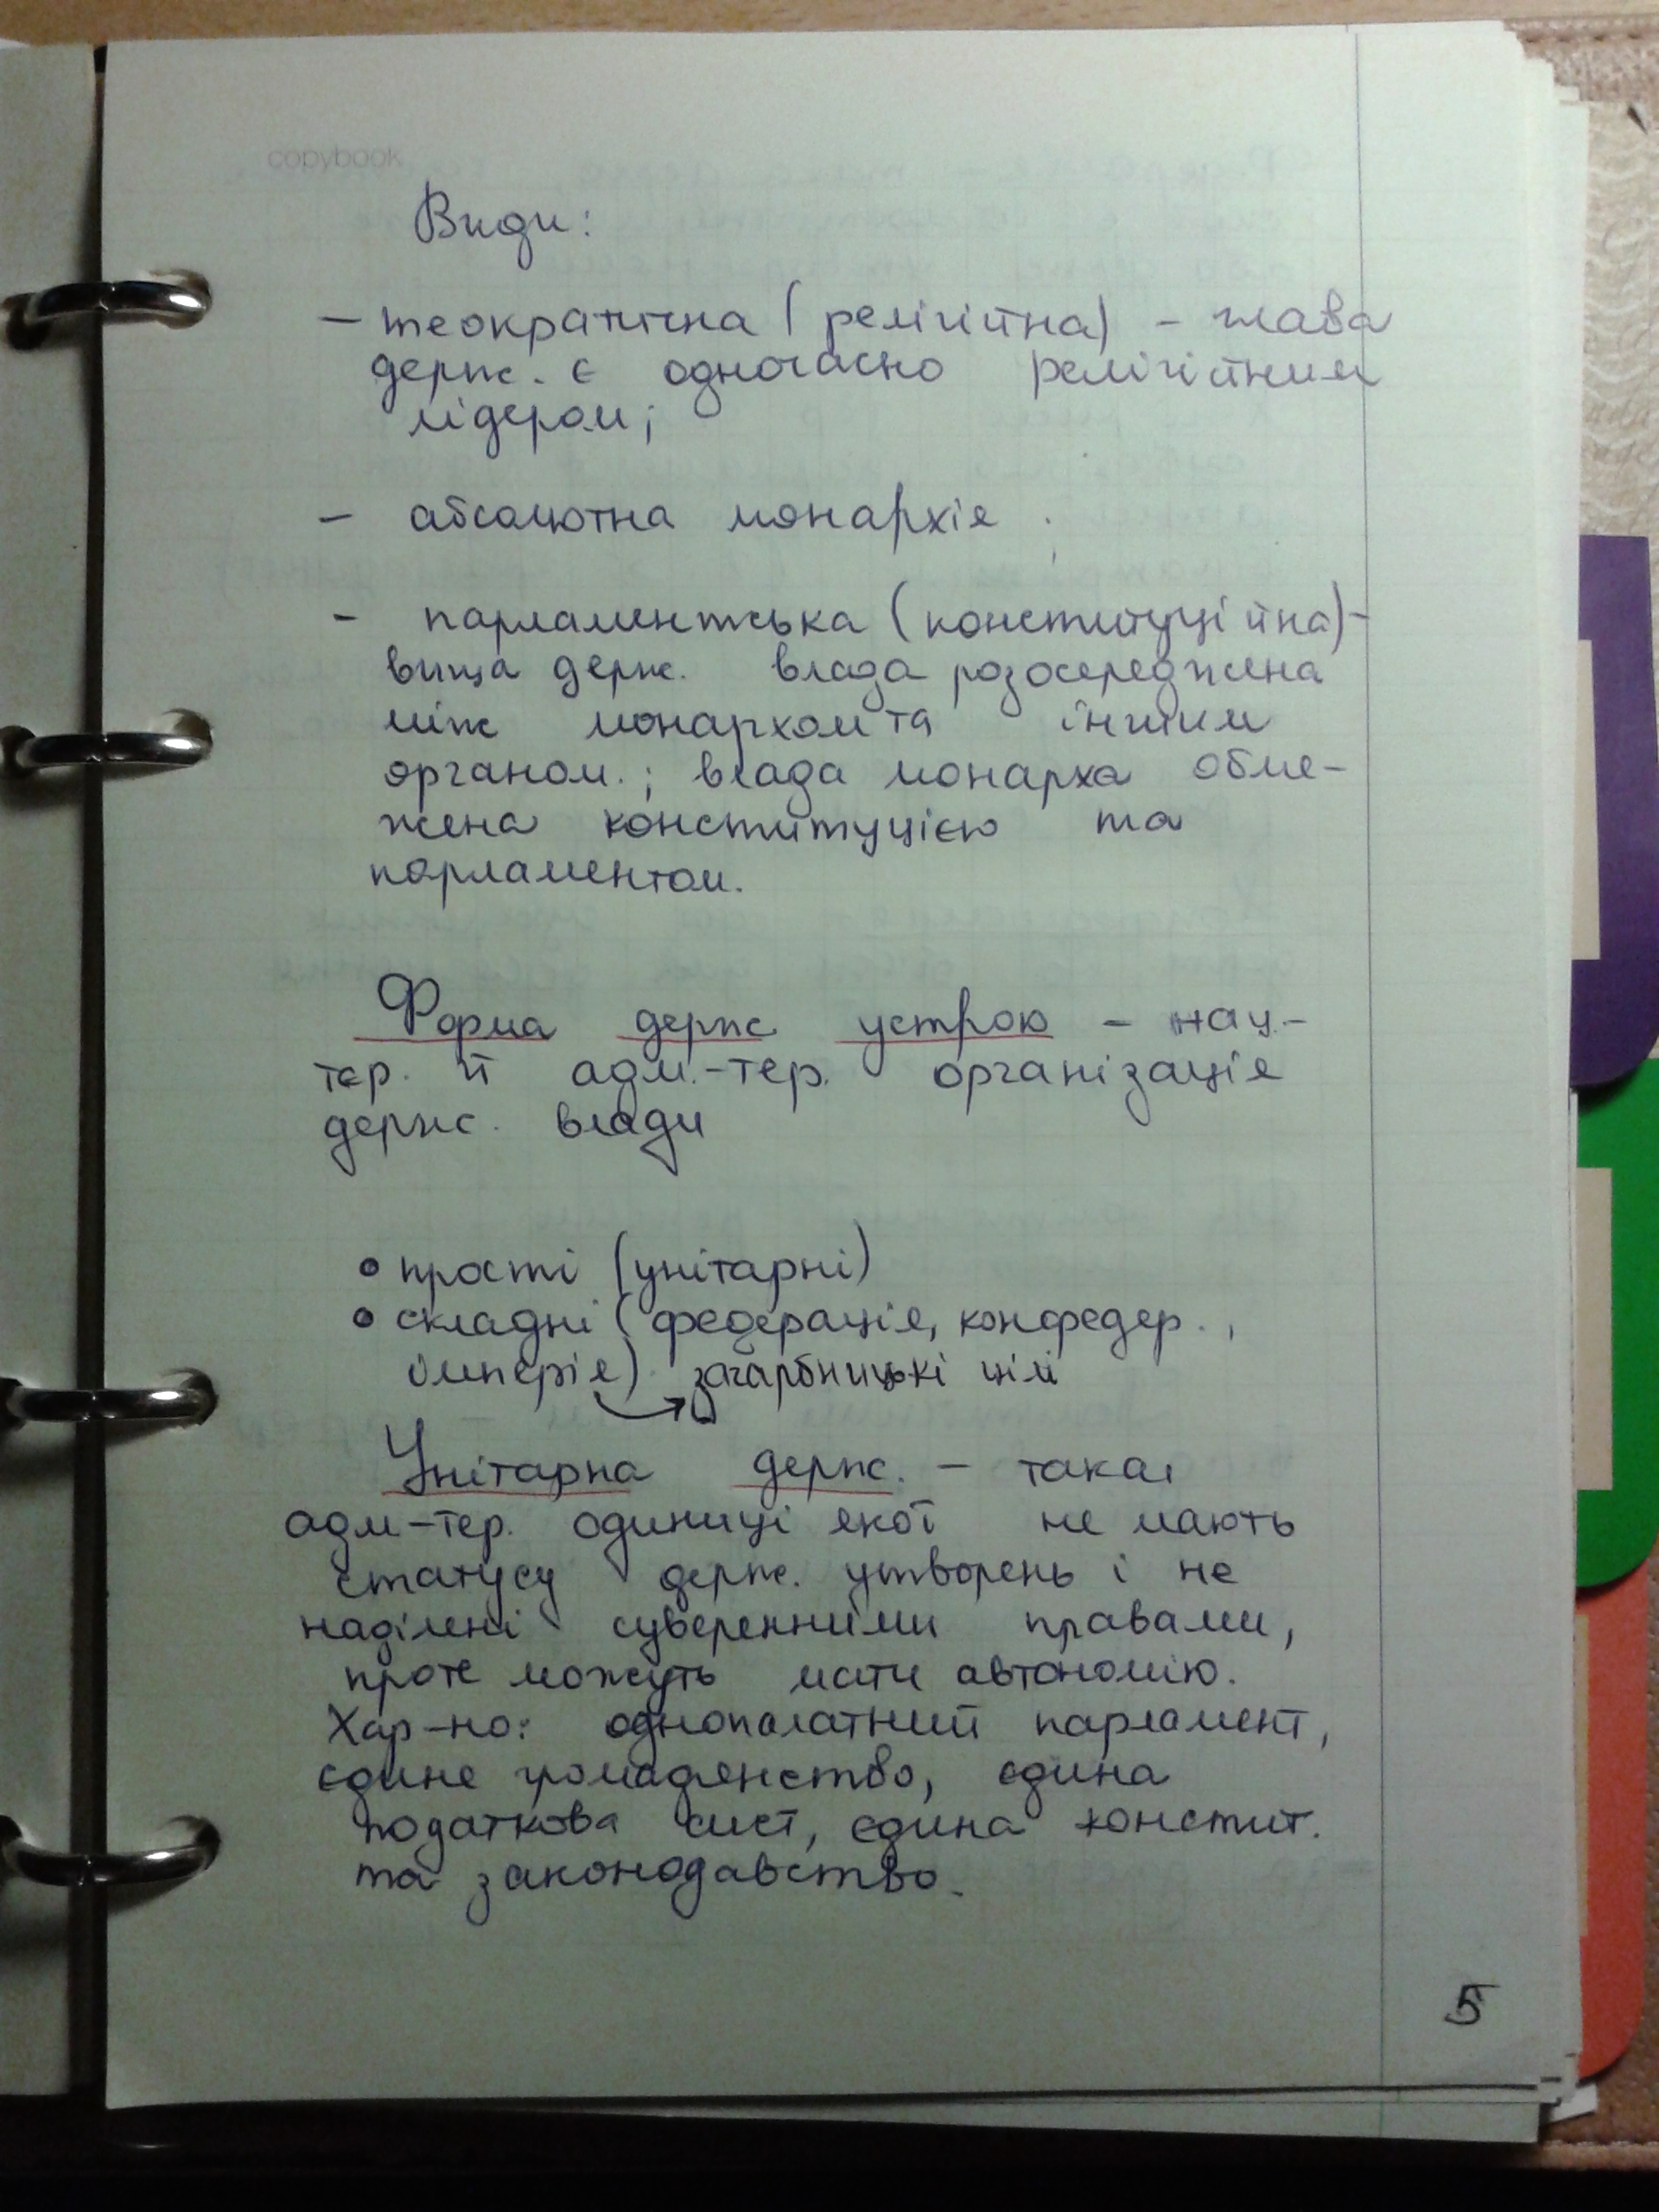 copybook
Види:
– теократична (релігійна) – глава
держ. є одночасно релігійним
лідером;
– абсолютна монархія
– парламентська (конституційна) –
вища держ. влада розосереджена
між монархом та іншим
органом.; влада монарха обме-
жена конституцією та
парламентом.
Форма держ устрою – нац.-
тер. й адм.-тер. організація
держ. влади
• прості (унітарні)
• складні (федерація, конфедер.,
імперія) загарбницькі цілі
Унітарна держ. – така,
адм-тер. одиниці якої не мають
статусу держ. утворень і не
наділені суверенними правами,
проте можуть мати автономію.
Хар-но: однопалатний парламент,
єдине громадянство, єдина
податкова сист, єдина констит.
та законодавство.
5